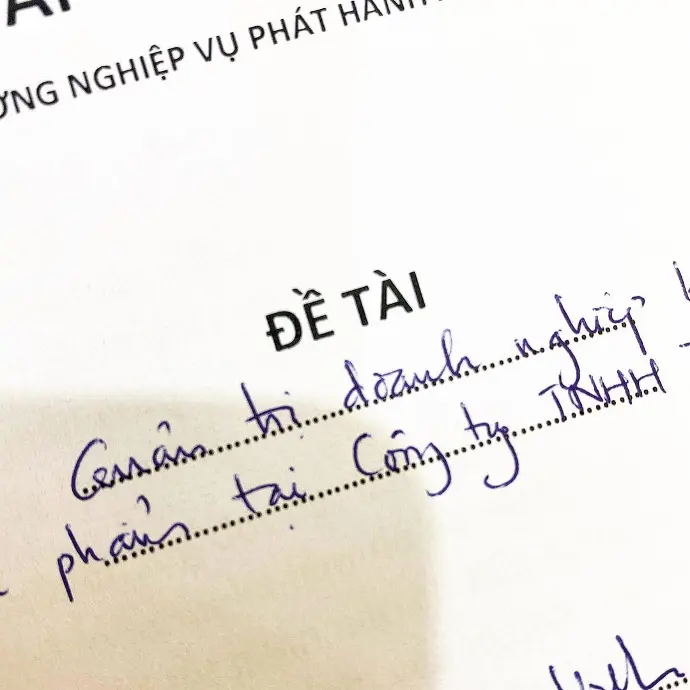 ƠNG NGHIỆP VỤ PHÁT HÀNH
ĐỀ TÀI
Quản trị doanh nghiệp
phẩm tại Công ty TNHH